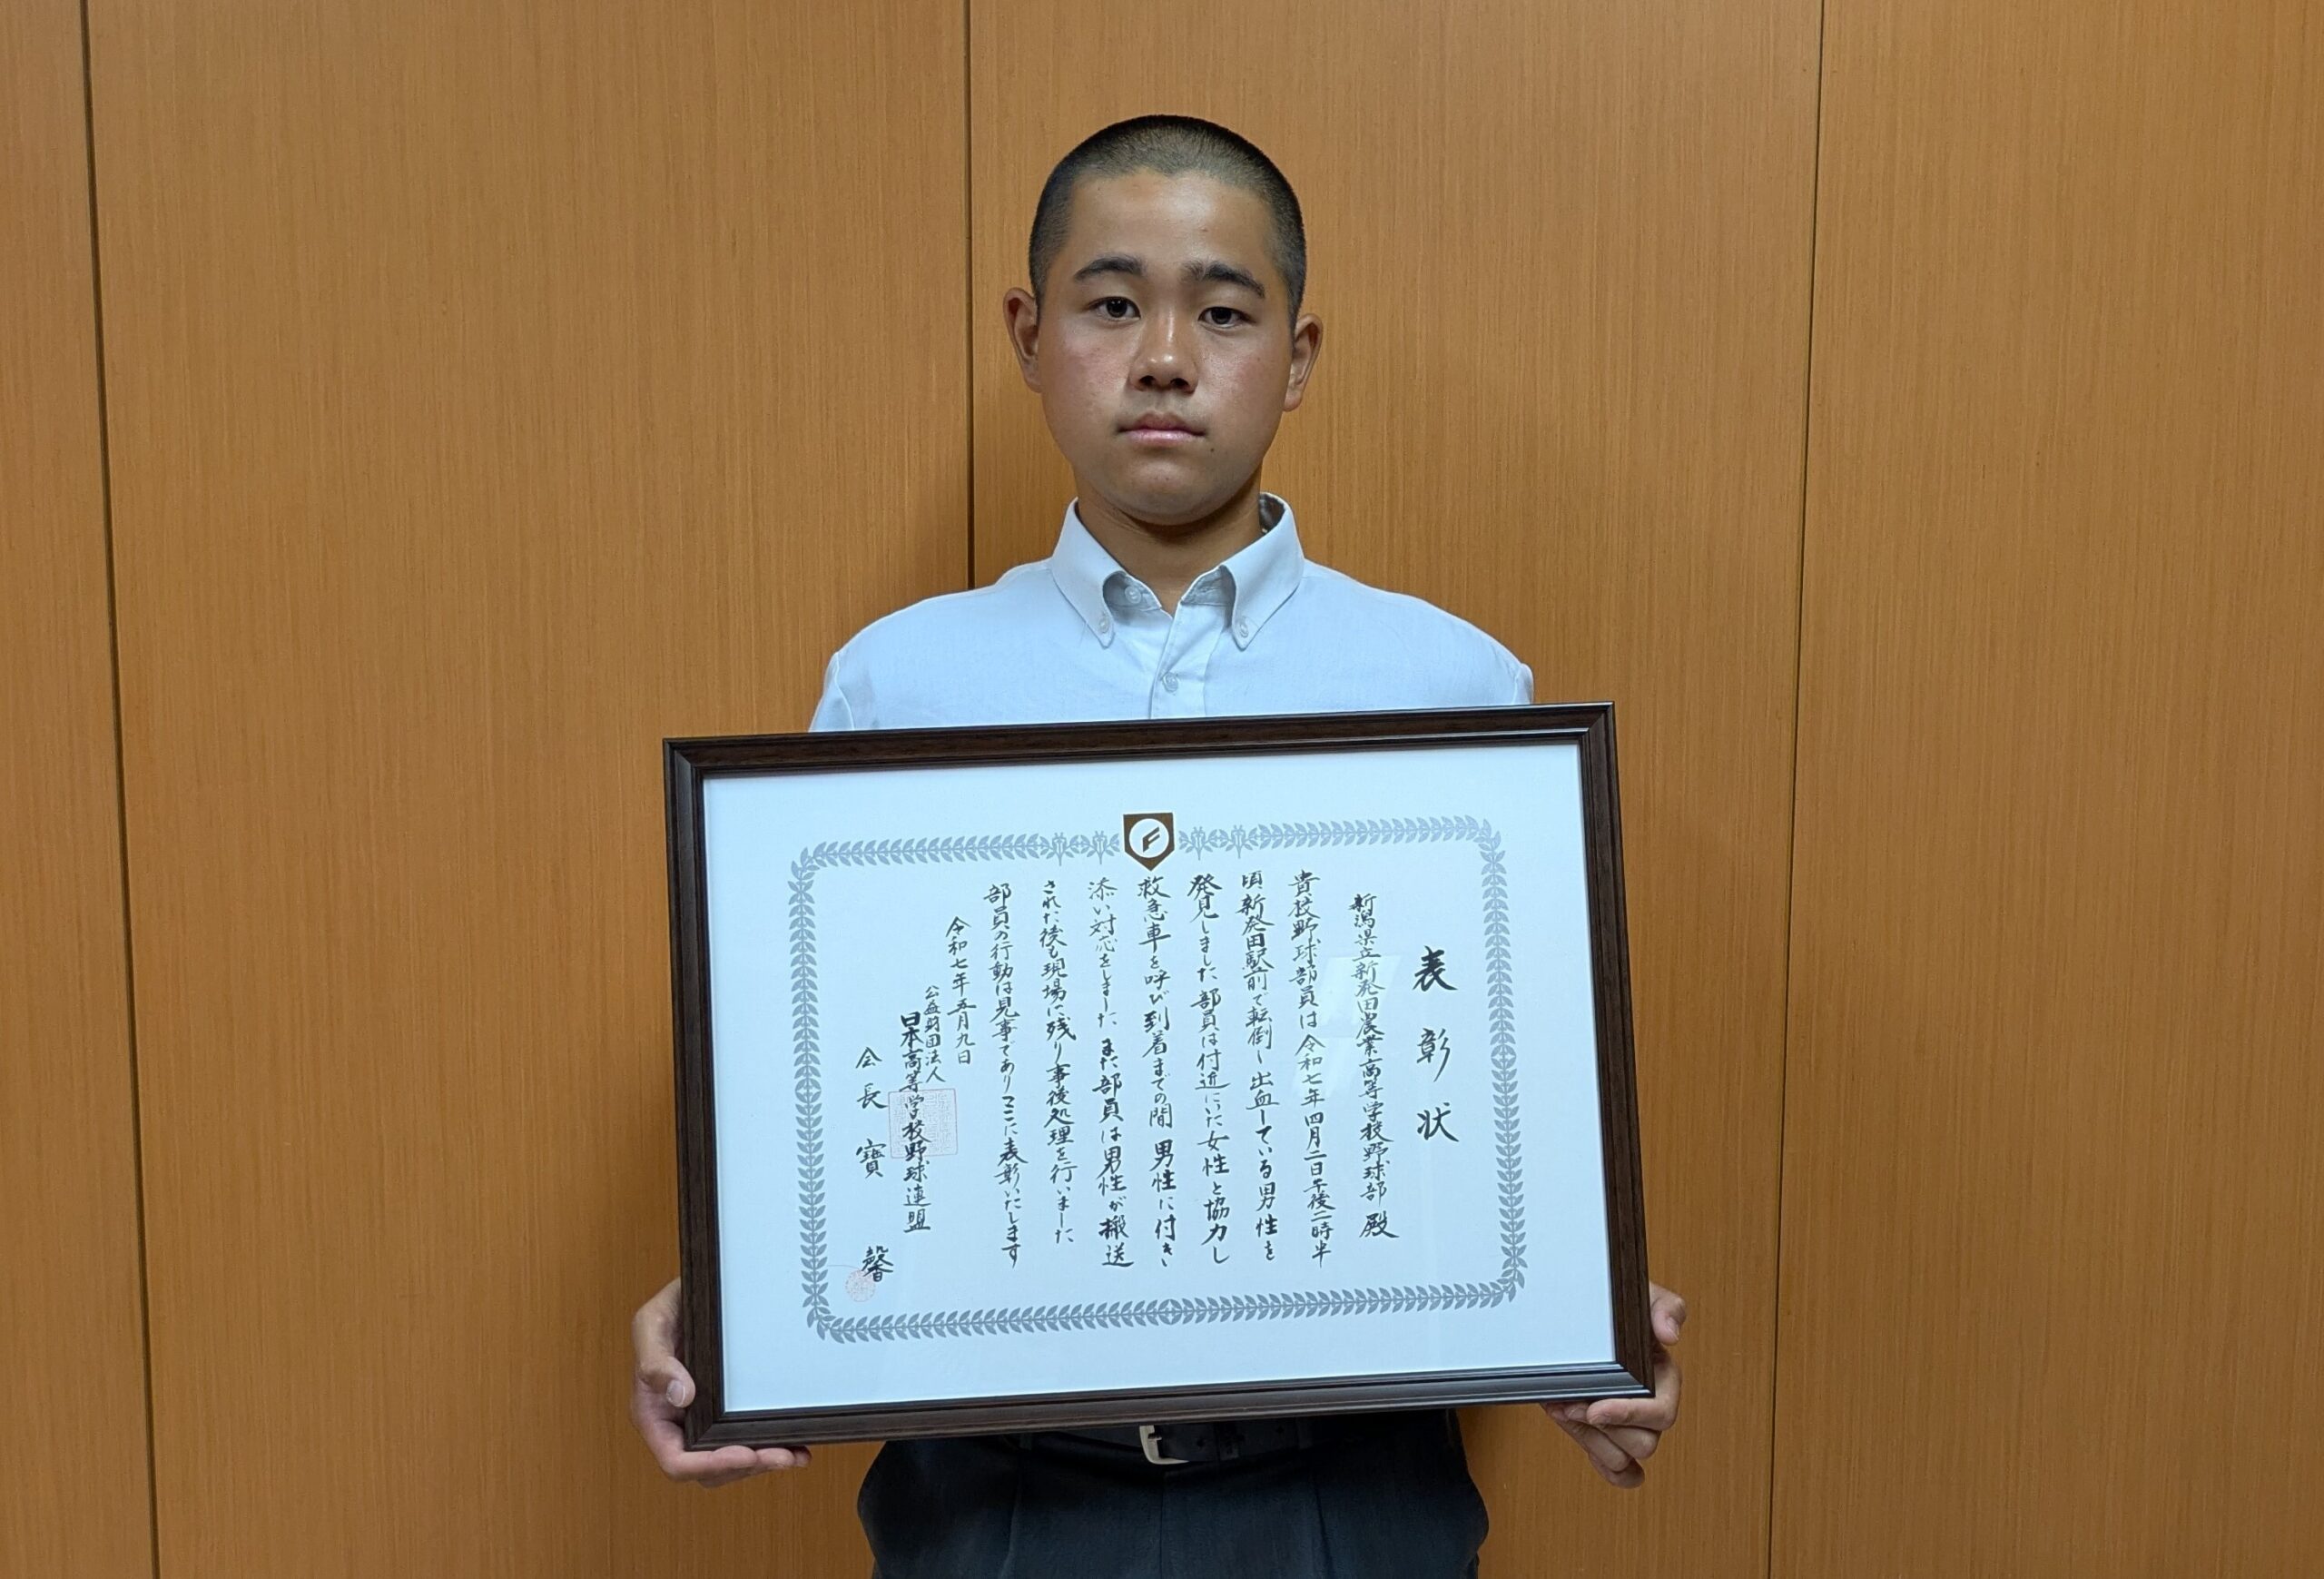 表彰状
新潟県立新発田農業高等学校野球部 殿
貴校野球部員は令和七年四月二日午後二時半
頃新発田駅前で転倒し出血している男性を
発見しました 部員は付近にいた女性と協力し
救急車を呼び到着までの間 男性に付き
添い対応をしました また部員は男性が搬送
された後も現場に残り事後処理を行いました
部員の行動は見事でありここに表彰いたします
令和七年五月九日
公益財団法人
日本高等学校野球連盟
会長 寳 馨